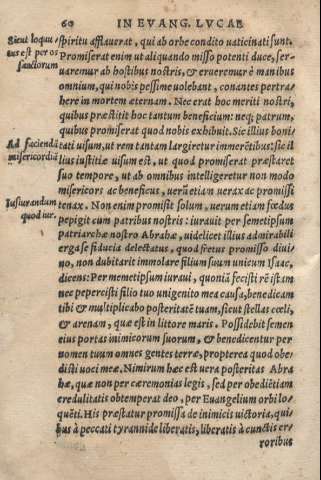 60 IN EVANG. LVCAE
Sicut loquu
tus est per os
sanctorum
spiritu afflauerat, qui ab orbe condito uaticinati sunt.
Promiserat enim ut aliquando misso potenti duce, ser-
uaremur ab hostibus nostris, & erueremur è manibus
omnium, qui nobis pessime uolebant, conantes pertra/
here in mortem æternam. Nec erat hoc meriti nostri,
quibus præstitit hoc tantum beneficium: neq; patrum,
quibus promiserat quod nobis exhibuit. Sic illius boni/
Ad faciendā
misericordiā
tati uisum, ut rem tantam largiretur immerētibus: sic il
lius iustitiæ uisum est, ut quod promiserat præstaret
suo tempore, ut ab omnibus intelligeretur non modo
misericors ac beneficus, uerū etiam uerax ac promissi
Iusiurandum
quod iur.
tenax. Non enim promisit solum, uerum etiam fœdus
pepigit cum patribus nostris: iurauit per semetipsum
patriarchæ nostro Abrahæ, uidelicet illius admirabili
erga se fiducia delectatus, quod fretus promisso diui/
no, non dubitarit immolare filium suum unicum Isaac,
dicens: Per memetipsum iuraui, quoniā fecisti rē istam
nec pepercisti filio tuo unigenito mea causa, benedicam
tibi & multiplicabo posteritatē tuam, sicut stellas cœli,
& arenam, quæ est in littore maris. Possidebit semen
eius portas inimicorum suorum, & benedicentur per
nomen tuum omnes gentes terræ, propterea quod obe-
disti uoci meæ. Nimirum hæc est uera posteritas Abra
hæ, quæ non per cæremonias legis, sed per obediētiam
credulitatis obtemperat deo, per Euangelium orbi lo/
quēti. His præstatur promissa de inimicis uictoria, qui/
bus à peccati tyrannide liberatis, liberatis à cunctis er/
roribus